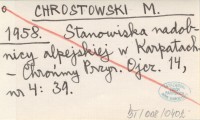 CHROSTOWSKI M.
1958. Stanowiska nadob-
nicy alpejskiej w Karpatach.
- Chrońmy Przyr. Ojcz. 14,
nr 4: 39.